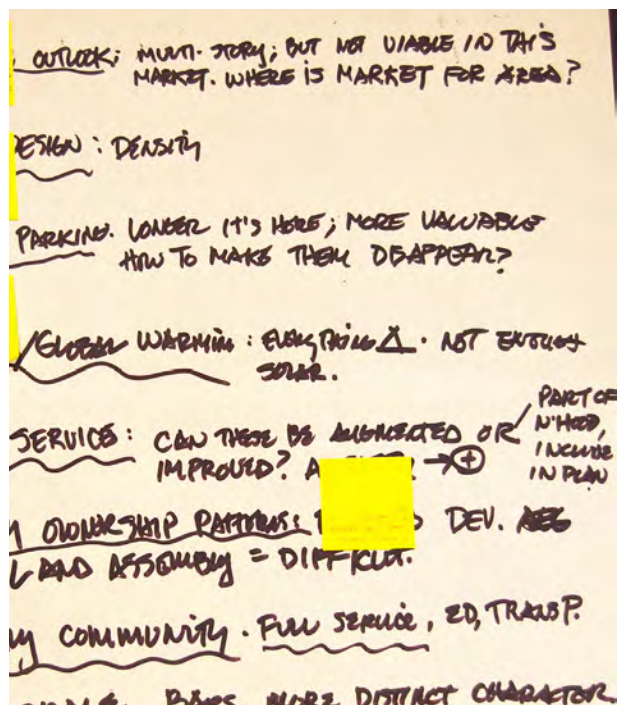 OUTLOOK: MULTI-STORY; BUT NOT VIABLE IN THIS
MARKET. WHERE IS MARKET FOR AREA?
ESIGN: DENSITY
PARKING. LONGER IT'S HERE; MORE VALUABLE
HOW TO MAKE THEM DISAPPEAR?
GLOBAL WARMING: EVERYTHING Δ. NOT ENOUGH
SOLAR.
PART OF
N'HOOD,
INCLUDE
IN PLAN
SERVICES: CAN THESE BE AUGMENTED OR
IMPROVED? → +
OWNERSHIP PATTERNS: DEV.
LAND ASSEMBLY = DIFFICULT.
COMMUNITY. FULL SERVICE, ED, TRANSP.
MORE DISTINCT CHARACTER.